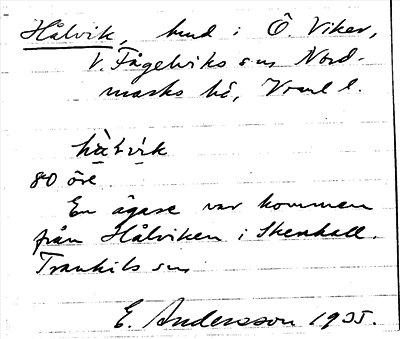 Hålvik, hmd i Ö. Viker,
V. Fågelviks sn Nord-
marks hd, Vrml l.
hà̀lvik
80 öre
En ägare var kommen
från Hålviken i Skenhall.
Trankils sn
E. Andersson 1935.